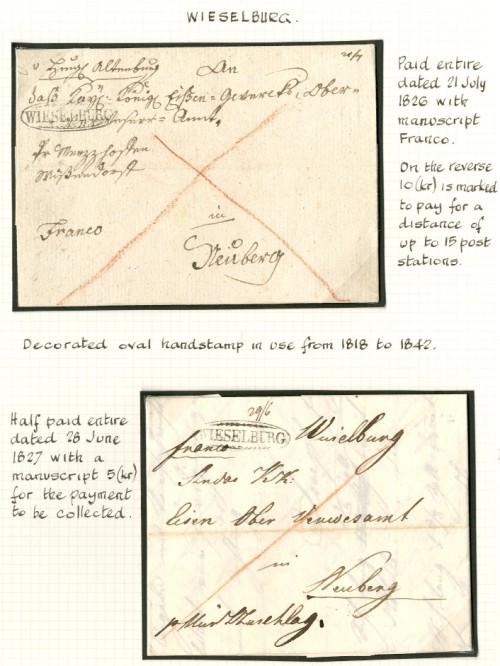 WIESELBURG.
21/7
Ung. Altenburg
An
WIESELBURG
Franco
in
Neuberg
Paid entire
dated 21 July
1826 with
manuscript
Franco.
On the reverse
10(kr) is marked
to pay for a
distance of
up to 15 post
stations.
Decorated oval handstamp in use from 1818 to 1842.
Half paid entire
dated 28 June
1827 with a
manuscript 5(kr)
for the payment
to be collected.
29/6
WIESELBURG Wieselburg
franco
An das KK:
Eisen Ober Verwesamt
in
Neuberg